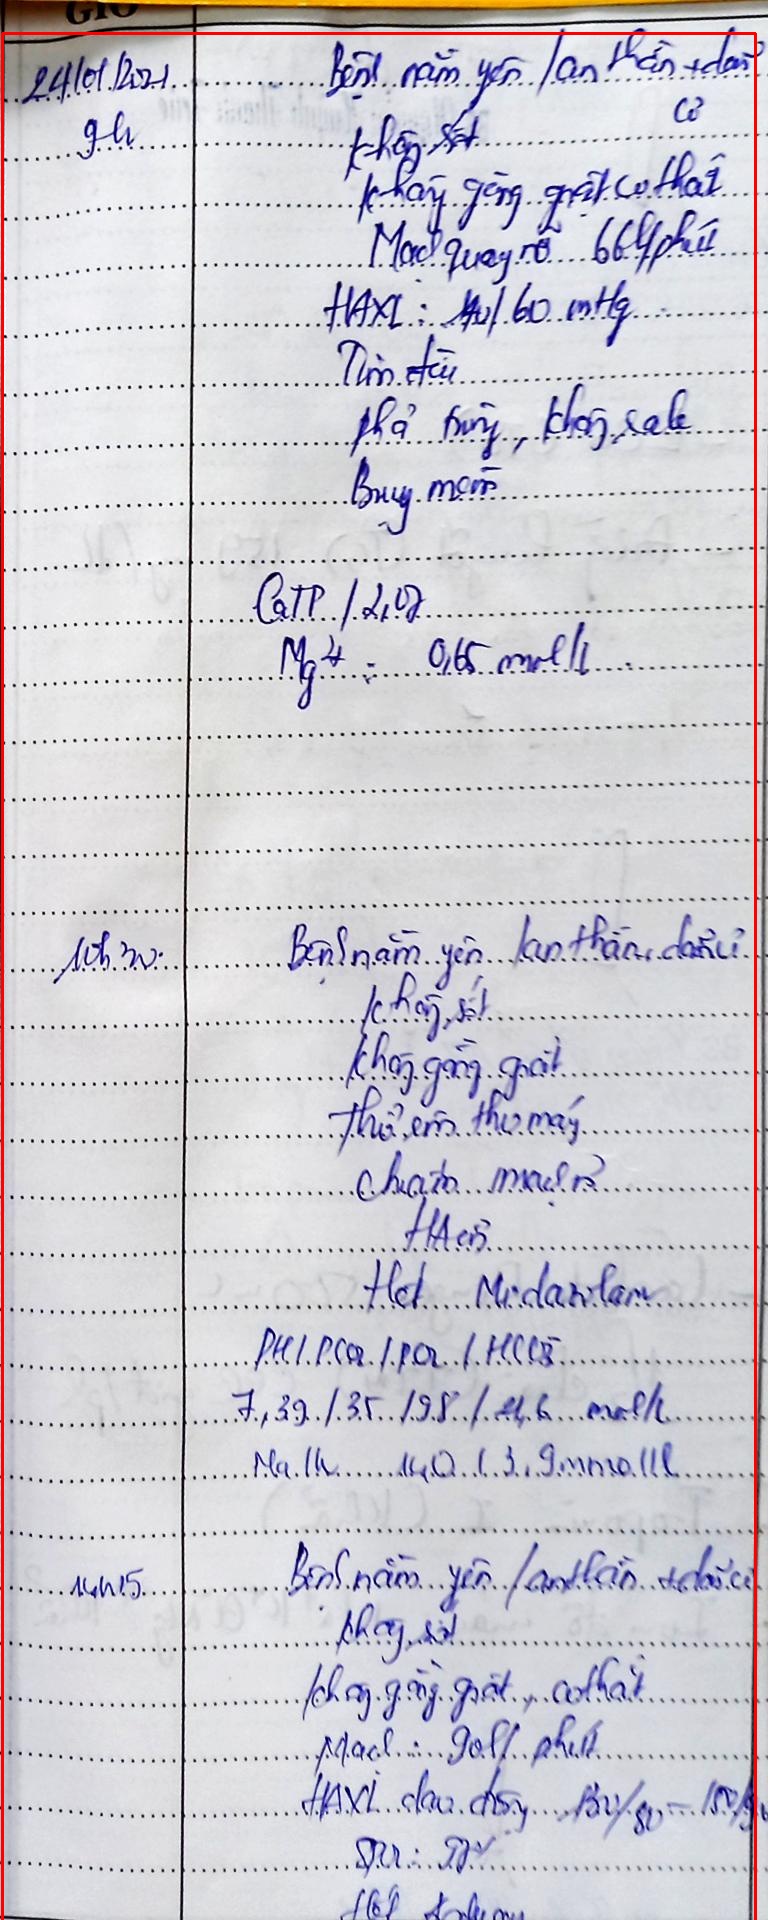 GIỜ
24/01/2021 Bệnh nằm yên / an thần + dãn
9h Không sốt cơ
Không gồng giật co thắt
Mạch quay rõ 66 l/phút
HAXL: 140/60 mmHg
Tim đều
phổi trong, không rale
Bụng mềm
CaTP / 2,07
Mg²⁺: 0,65 mmol/l
10h30. Bệnh nằm yên / an thần, dãn cơ
Không sốt
Không gồng giật
Thở êm theo máy
mạch rõ
HA ổn
Het Midazolam
PH / PCO2 / PO2 / HCO3
7,39 / 35 / 98 / 21,6 mmol/l
Na / K 140 / 3,9 mmol/l
14h15 Bệnh nằm yên / an thần + dãn cơ
Không sốt
Không gồng giật, co thắt
Mạch: 90 l/phút
HAXL dao động 130/80 –